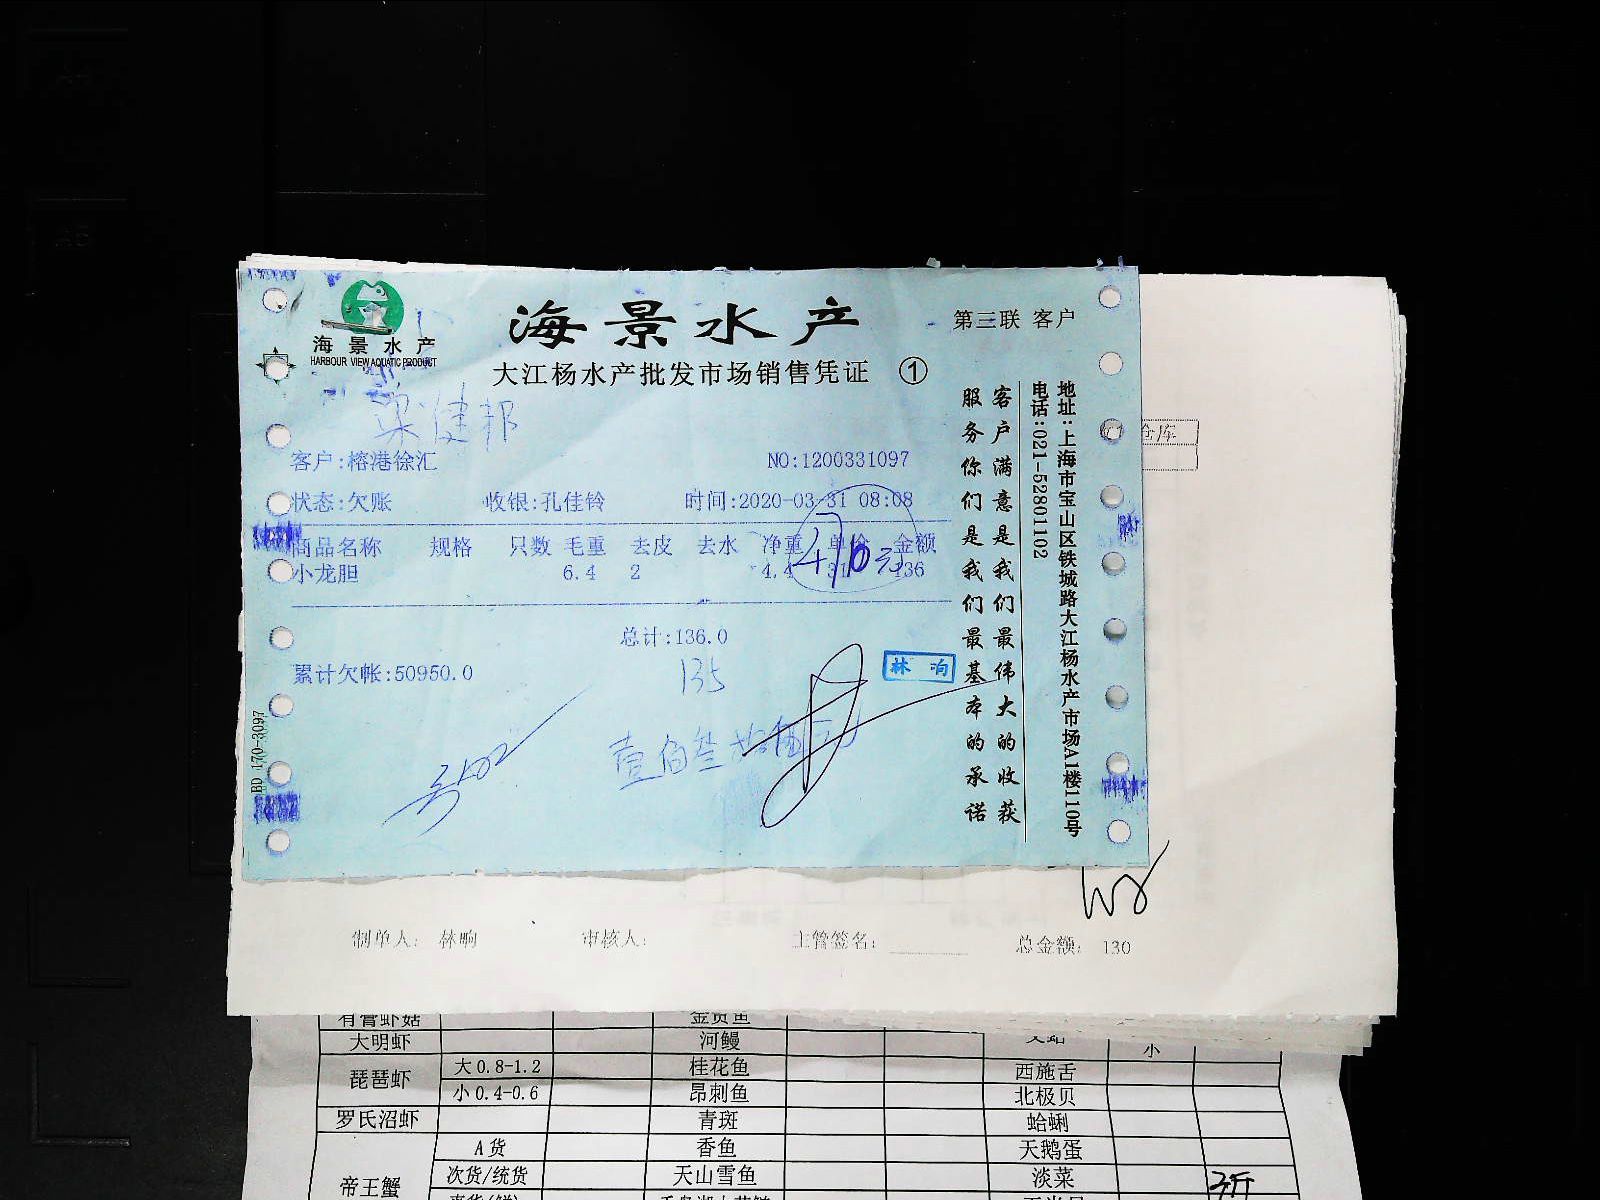 海景水产
HARBOUR VIEW AQUATIC PRODUCT
海景水产
第三联 客户
大江杨水产批发市场销售凭证 ①
梁健邦
客户:榕港徐汇 NO:1200331097
状态:欠账 收银:孔佳铃 时间:2020-03-31 08:08
商品名称 规格 只数 毛重 去皮 去水 净重 单价 金额
小龙胆 6.4 2 4.4 31 136
总计:136.0
累计欠帐:50950.0
135
林响
壹佰叁拾伍元
客户满意是我们最伟大的收获
服务你们是我们最基本的承诺
地址:上海市宝山区铁城路大江杨水产市场A1楼110号
电话:021-52801102
BD 170-3097
仓库
制单人: 林响 审核人: 主管签名: 总金额: 130
有膏虾菇
大明虾 河鳗 小
琵琶虾 大0.8-1.2 桂花鱼 西施舌
小0.4-0.6 昂刺鱼 北极贝
罗氏沼虾 青斑 蛤蜊
A货 香鱼 天鹅蛋
帝王蟹 次货/统货 天山雪鱼 淡菜 3斤